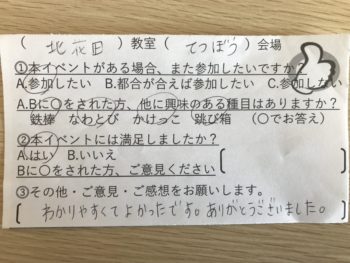 ( 北花田 )教室( てつぼう )会場
①本イベントがある場合、また参加したいですか?
A.参加したい B.都合が合えば参加したい C.参加したい
A.Bに〇をされた方、他に興味のある種目はありますか?
鉄棒 なわとび かけっこ 跳び箱 (〇でお答え)
②本イベントには満足しましたか?
A.はい B.いいえ
Bに〇をされた方、ご意見ください [ ]
③その他・ご意見・ご感想をお願いします。
[ わかりやすくてよかったです。ありがとうございました。